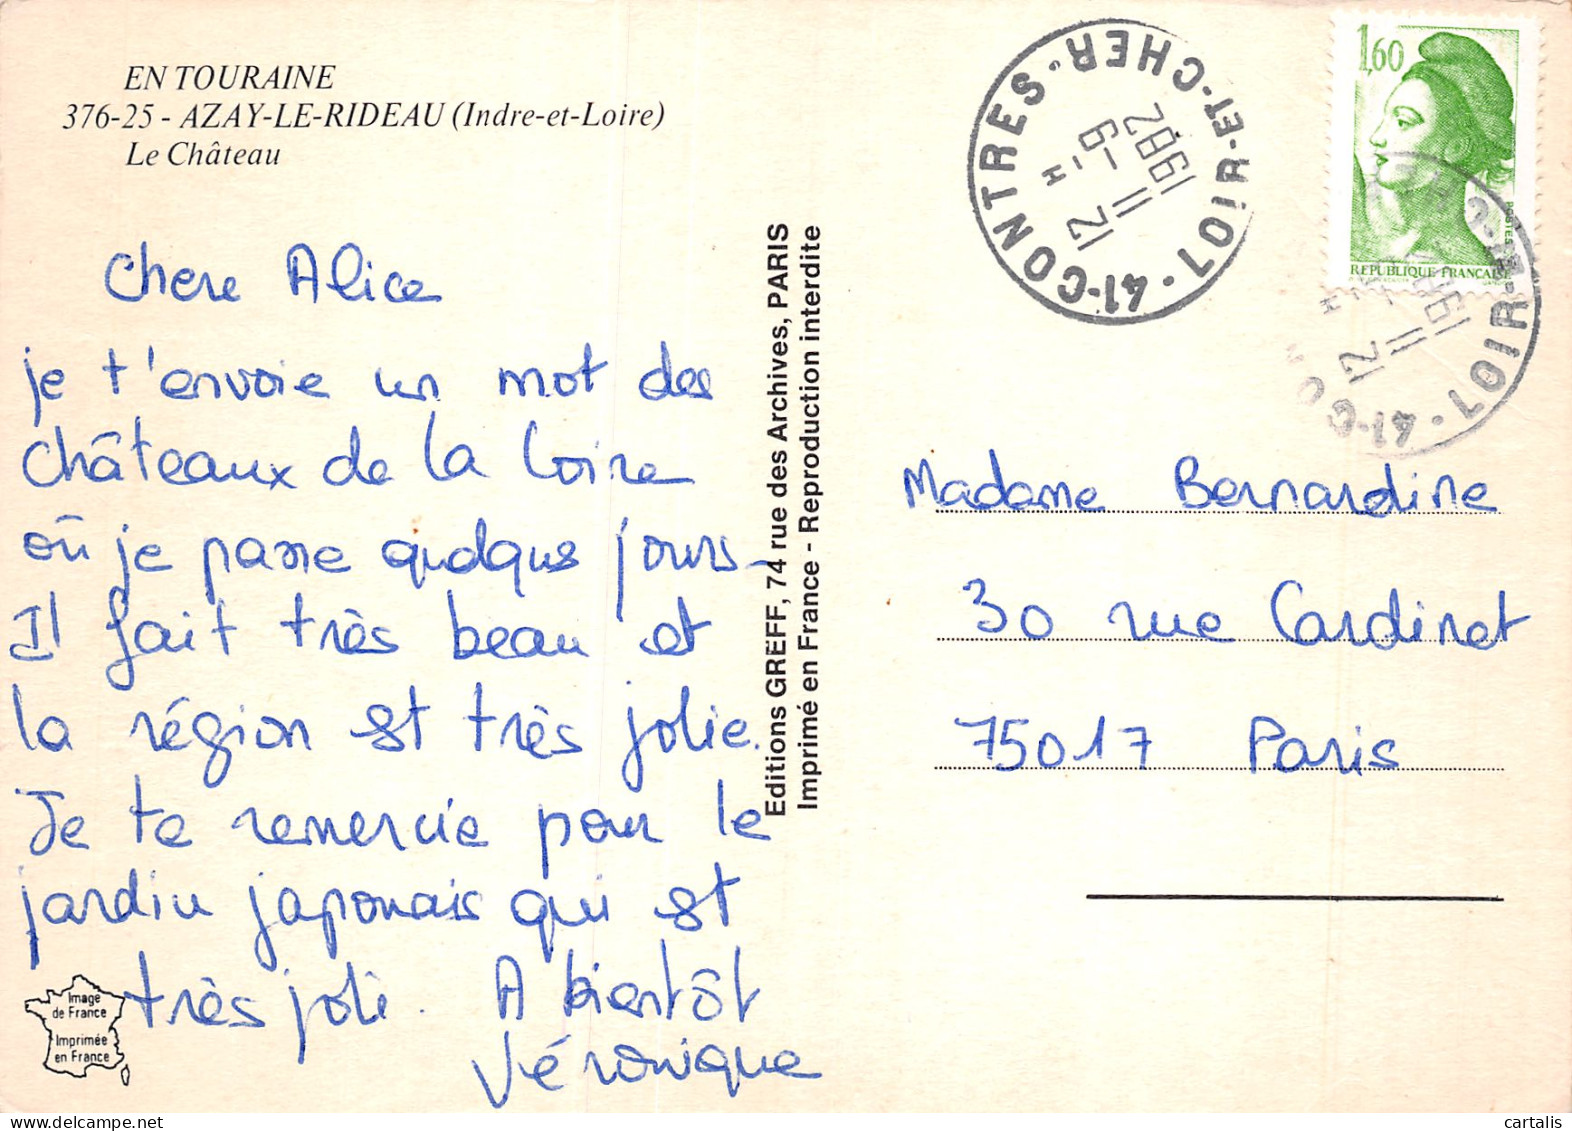 EN TOURAINE
376-25 - AZAY-LE-RIDEAU (Indre-et-Loire)
Le Château
Chere Alice
je t'envoie un mot des
châteaux de la Loire
où je passe quelques jours-
Il fait très beau et
la région est très jolie.
Je te remercie pour le
jardin japonais qui est
très joli. A bientôt
Véronique
Image
de France
Imprimée
en France
Editions GREFF, 74 rue des Archives, PARIS
Imprimé en France - Reproduction interdite
41-CONTRES · LOIR-ET-CHER
12 - 9 H
11
1982
1,60
POSTES
REPUBLIQUE FRANCAISE
41-CO
LOIR-ET-CHER
12
H
11
198
Madame Bernardine
30 rue Cardinet
75017 Paris
cartalis